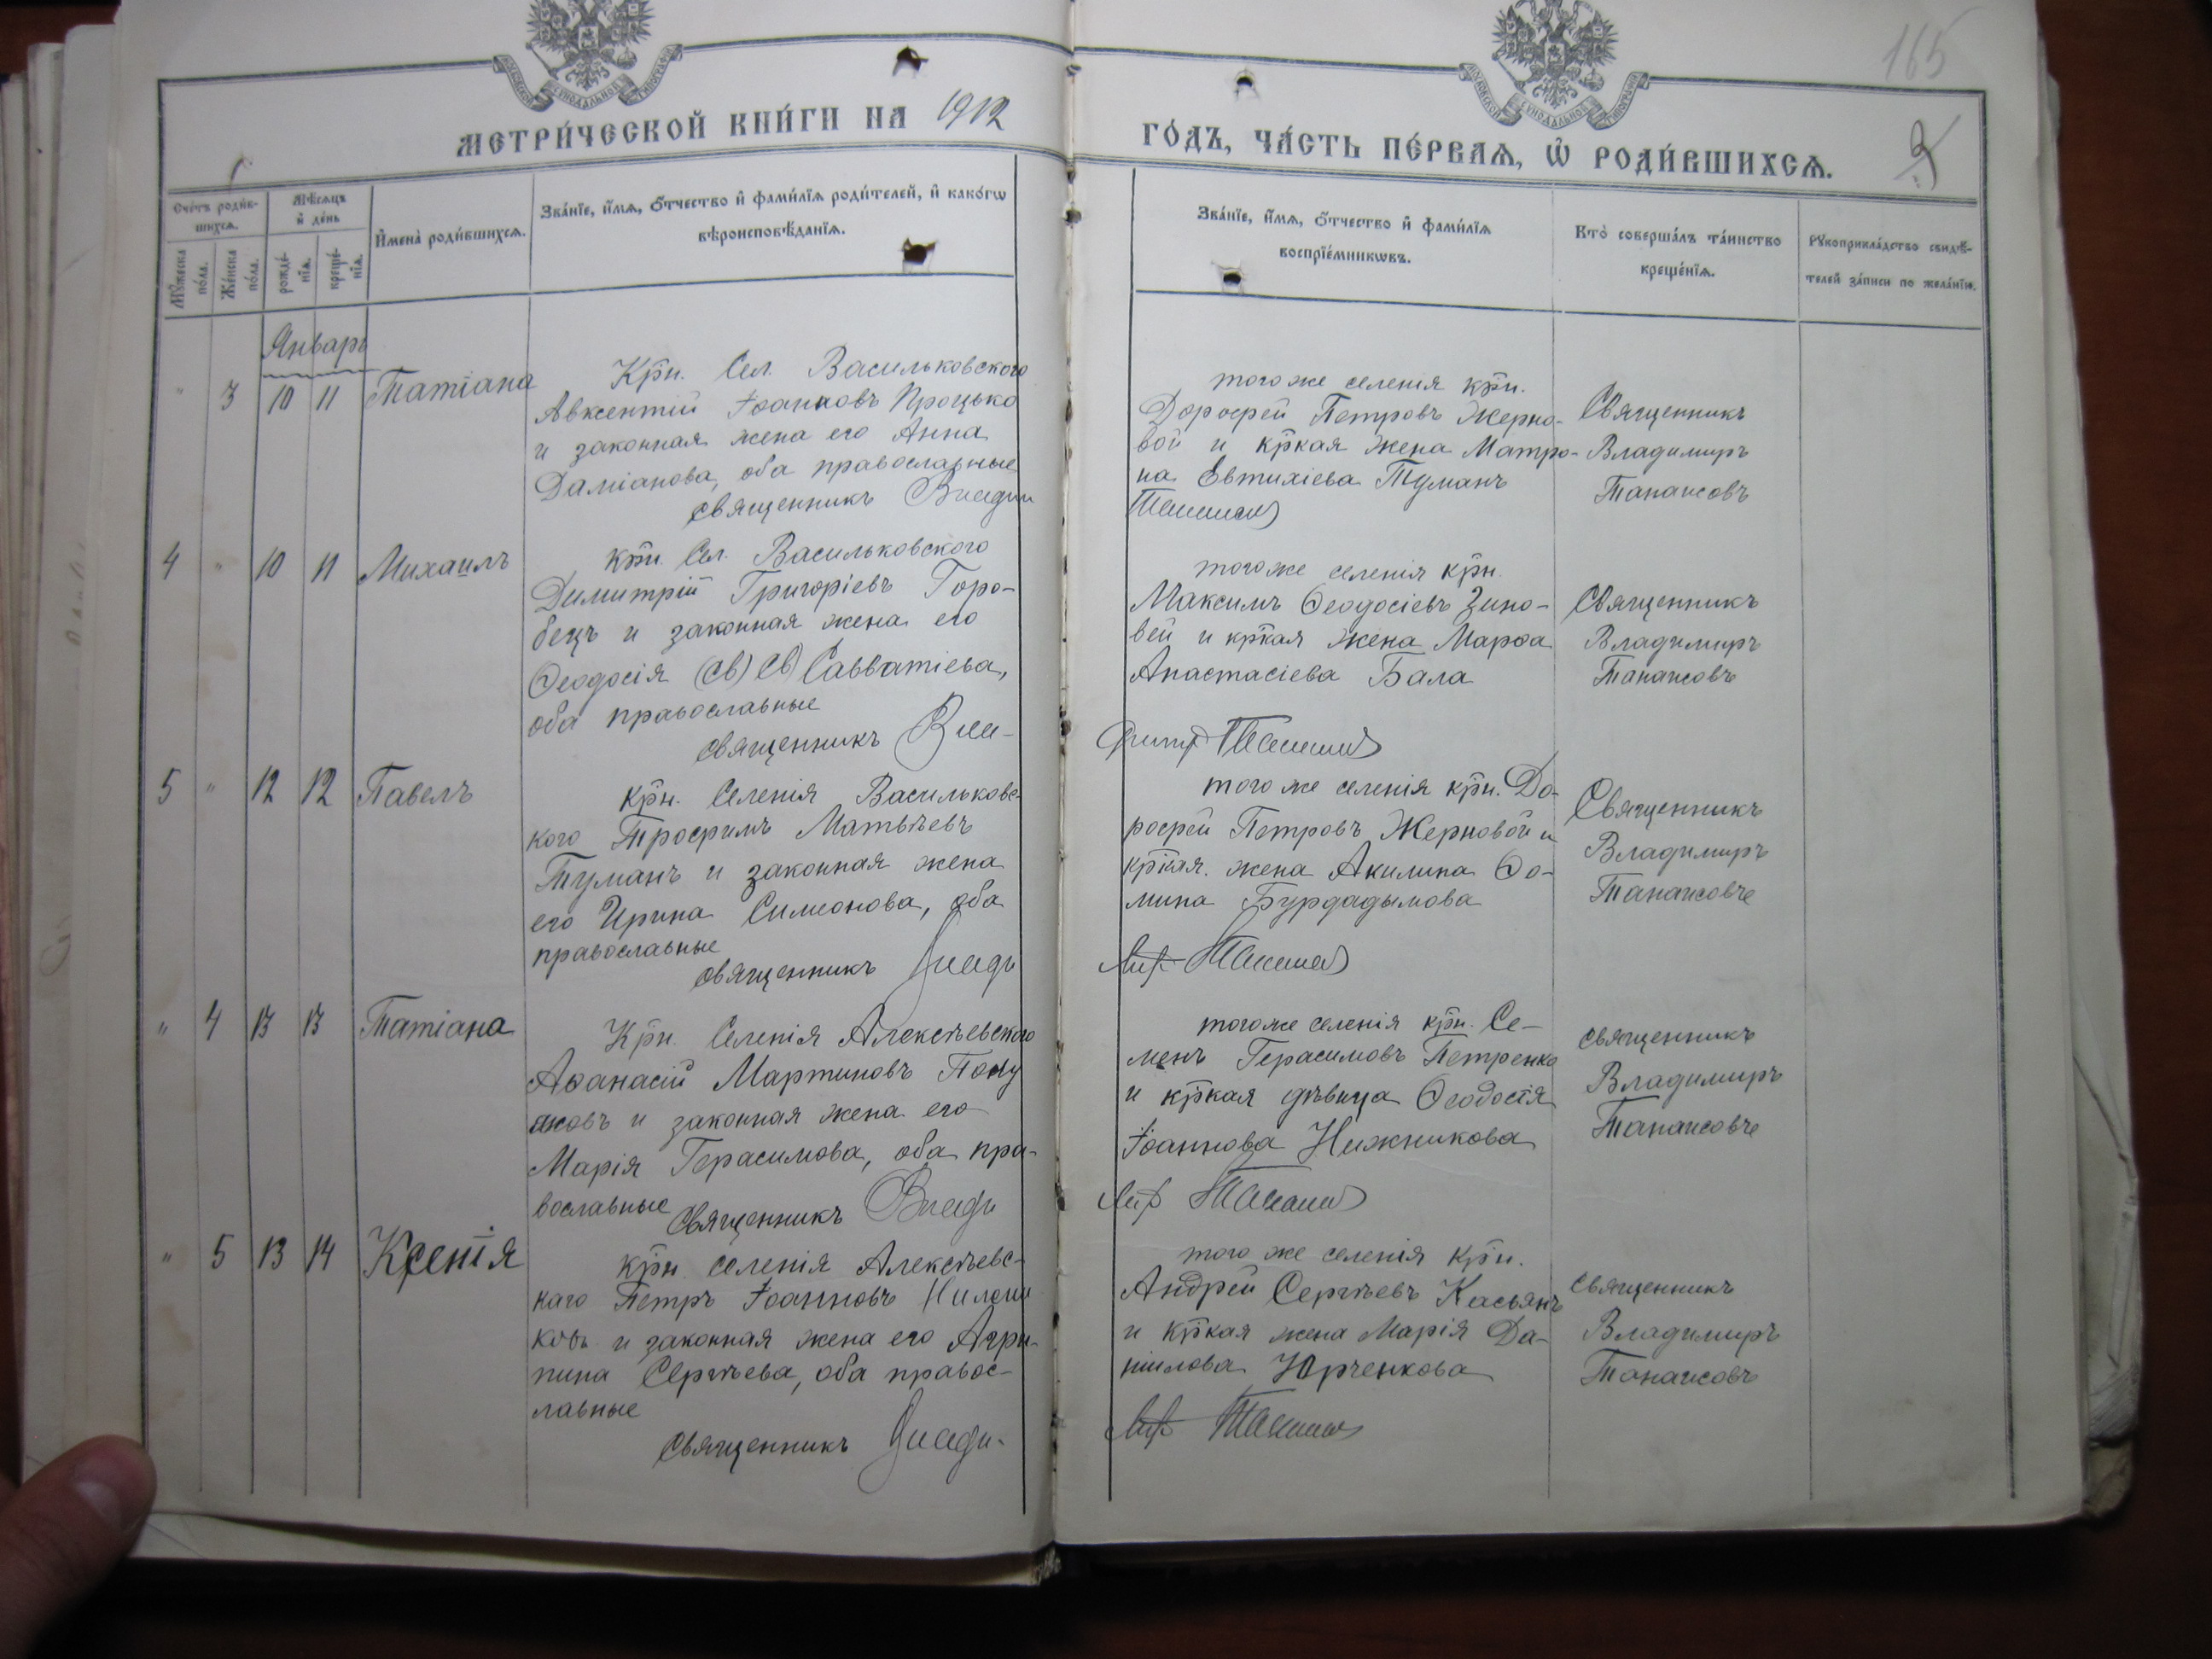 165
МЕТРИ́ЧЕСКОЙ КНИ́ГИ НА 1912
ГО́ДЪ, ЧА́СТЬ ПЕ́РВАѦ, Ѡ҆ РОДИ́ВШИХСѦ.
Сче́тъ роди́в-
шихсѧ.
Мѣ́сѧцъ
и҆ де́нь
Мꙋ́жеска
по́ла.
Же́нска
по́ла.
рожде́-
нїѧ.
креще́-
нїѧ.
И҆мена̀ роди́вшихсѧ.
Зва́нїе, и҆́мѧ, ѻ҆́тчество и҆ фами́лїѧ роди́телей, и҆ како́гѡ
вѣроисповѣ́данїѧ.
Зва́нїе, и҆́мѧ, ѻ҆́тчество и҆ фами́лїѧ
воспрїе́мникѡвъ.
Кто̀ соверша́лъ та́инство
креще́нїѧ.
Рꙋкоприкла́дство свидѣ́-
телей за́писи по жела́нїю.
Январь
" 3 10 11 Татіана
Крн. Сел. Васильковского
Авксентій Іоанновъ Процько
и законная жена его Анна
Даміанова, оба православные
священникъ Влади
того же селенія крн.
Дорофей Петровъ Жерно-
вой и кркая жена Матро-
на Евтихіева Туманъ
Священникъ
Владимиръ
4 " 10 11 Михаилъ
крн. Сел. Васильковского
Димитрій Григоріевъ Горо-
бецъ и законная жена его
Ѳеодосія (св) св) Савватіева,
оба православные
священникъ
того же селенія крн.
Максимъ Ѳеодосіевъ Зино-
вей и кркая жена Марѳа
Анастасіева Бала
Священникъ
Владимиръ
5 " 12 12 Павелъ
крн. Селенія Васильковс-
кого Трофимъ Матвѣевъ
Туманъ и законная жена
его Ирина Симеонова, оба
православные
священникъ Влади
того же селенія крн. До-
рофей Петровъ Жерновой и
кркая. жена Акилина Ѳо-
мина Бурдадымова
Священникъ
Владимиръ
" 4 13 13 Татіана
Крн. Селенія Алексѣевского
Аѳанасій Мартиновъ
и законная жена его
Марія Герасимова, оба пра-
вославные
Священникъ Влади
того же селенія крн. Се-
менъ Герасимовъ Петренко
и кркая дѣвица Ѳеодосія
Іоаннова Нижникова
священникъ
Владимиръ
" 5 13 14 Ксенія
крн. селенія Алексѣевс-
каго Петръ Іоанновъ
ковъ и законная жена его Агри-
пина Сергѣева, оба правос-
лавные
Священникъ Влади-
того же селенія крн.
Андрей Сергѣевъ Касьянъ
и кркая жена Марія Да-
ніилова Юрченкова
священникъ
Владимиръ